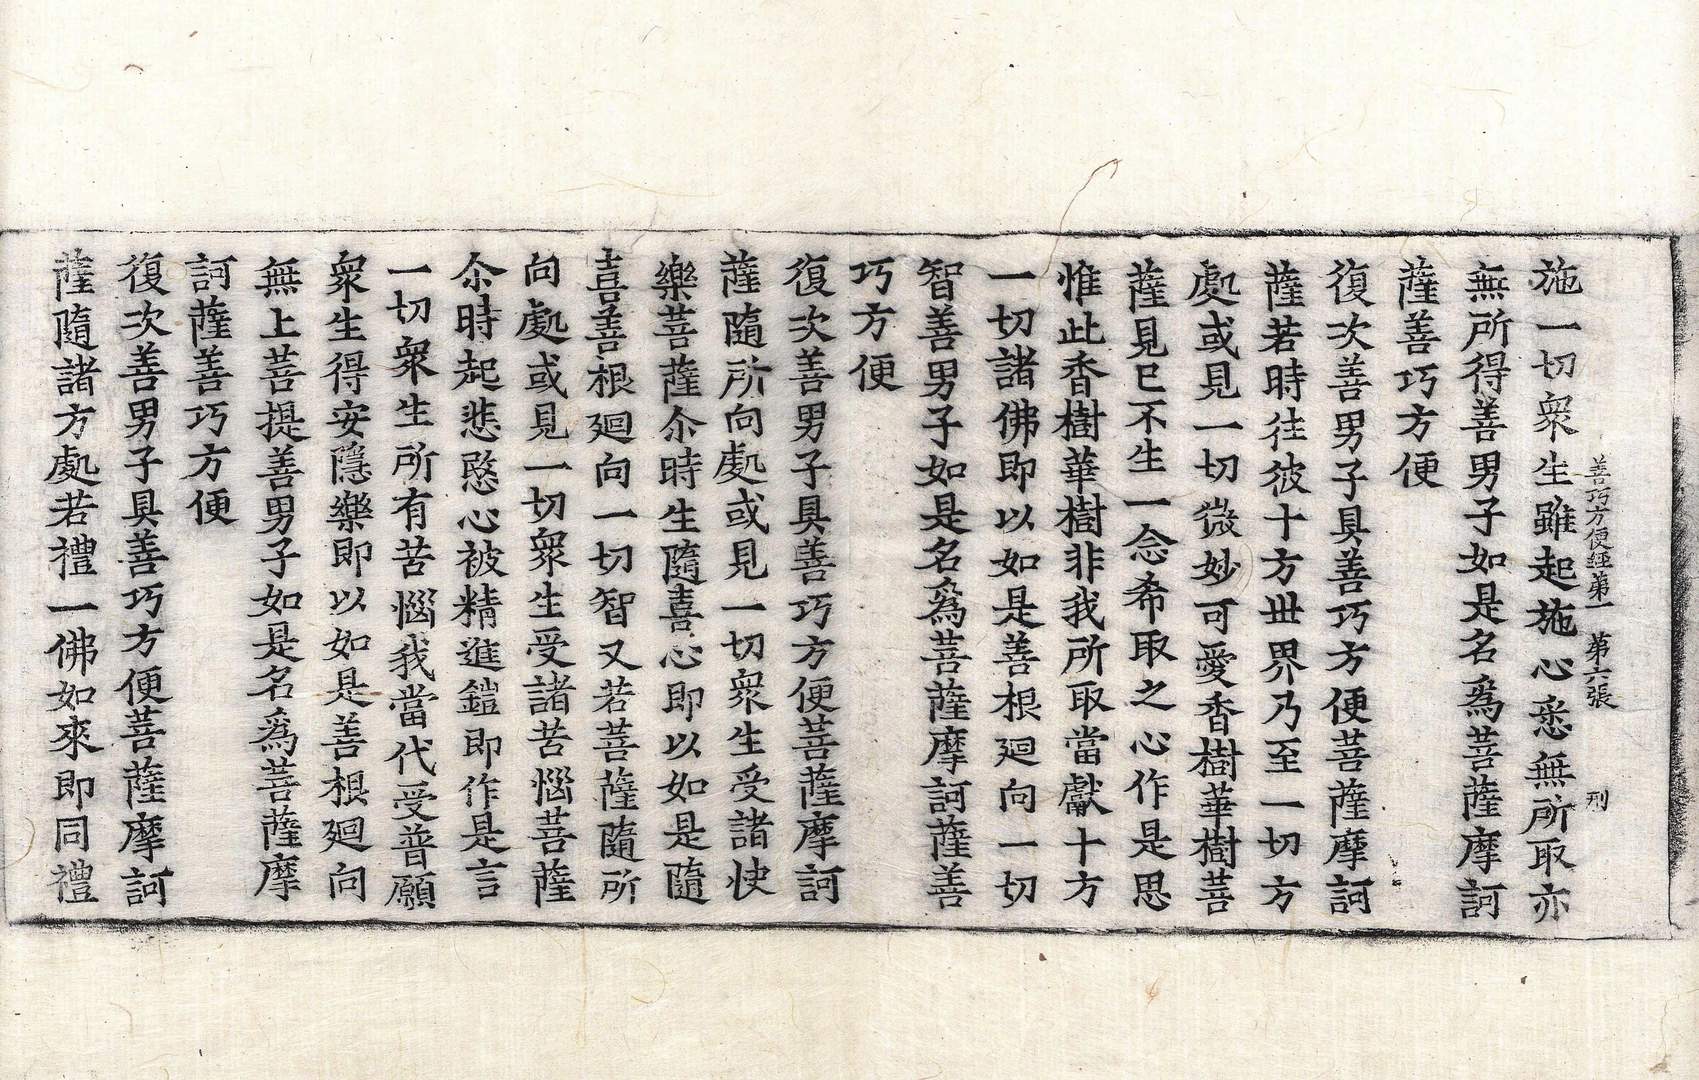 善巧方便經第一 第六張 刑
施一切衆生雖起施心悉無所取亦
無所得善男子如是名爲菩薩摩訶
薩善巧方便
復次善男子具善巧方便菩薩摩訶
薩若時往彼十方世界乃至一切方
處或見一切微妙可愛香樹華樹菩
薩見已不生一念希取之心作是思
惟此香樹華樹非我所取當獻十方
一切諸佛即以如是善根迴向一切
智善男子如是名爲菩薩摩訶薩善
巧方便
復次善男子具善巧方便菩薩摩訶
薩隨所向處或見一切衆生受諸快
樂菩薩尒時生隨喜心即以如是隨
喜善根迴向一切智又若菩薩隨所
向處或見一切衆生受諸苦惱菩薩
尒時起悲愍心被精進鎧即作是言
一切衆生所有苦惱我當代受普願
衆生得安隱樂即以如是善根迴向
無上菩提善男子如是名爲菩薩摩
訶薩善巧方便
復次善男子具善巧方便菩薩摩訶
薩隨諸方處若禮一佛如來即同禮